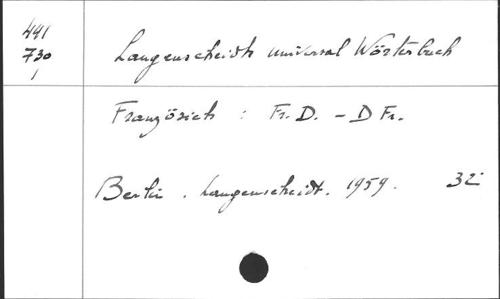 441
730
1
Langenscheidts universal Wörterbuch
Französich : Fr. D. - D Fr.
Berlin. Langenscheidt. 1959. 32°